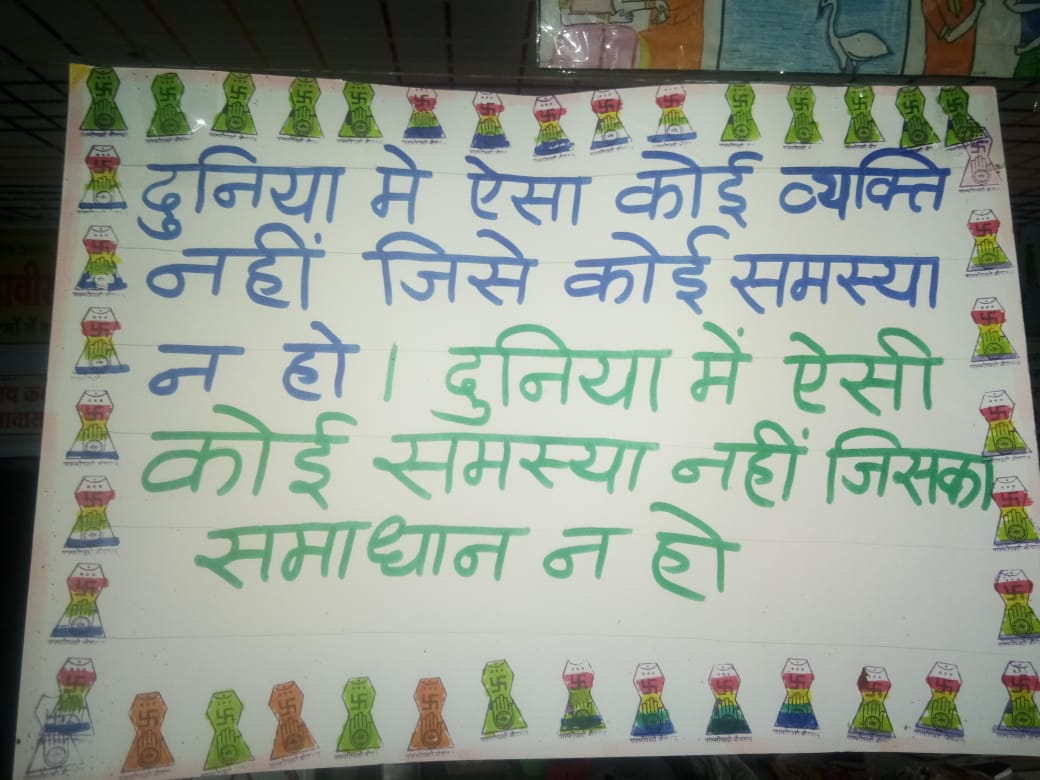 दुनिया मे ऐसा कोई व्यक्ति
नहीं जिसे कोई समस्या
न हो। दुनिया में ऐसी
कोई समस्या नहीं जिसका
समाधान न हो